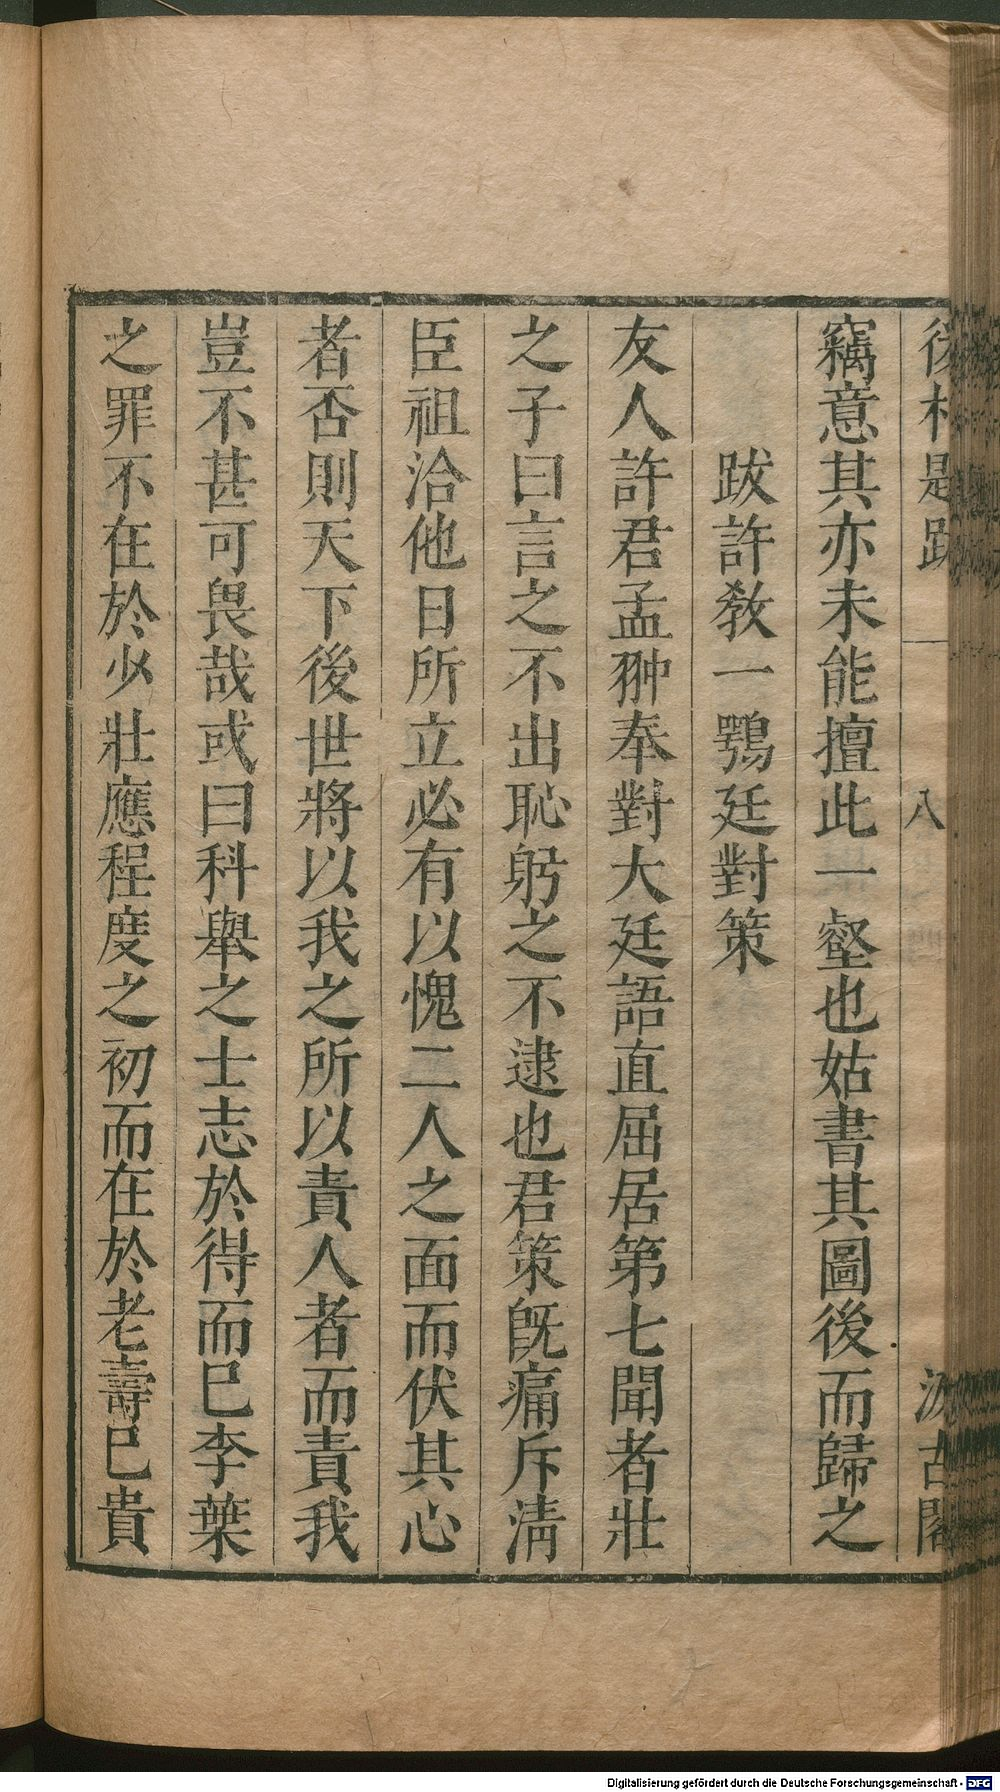 後村題跋 一 八 汲古閣
竊意其亦未能擅此一壑也姑書其圖後而歸之
跋許教一鶚廷對策
友人許君孟翀奉對大廷語直屈居第七聞者壯
之子曰言之不出恥躬之不逮也君策旣痛斥淸
臣祖洽他日所立必有以愧二人之面而伏其心
者否則天下後世將以我之所以責人者而責我
豈不甚可畏哉或曰科舉之士志於得而已李葉
之罪不在於少壯應程度之初而在於老壽已貴
Digitalisierung gefördert durch die Deutsche Forschungsgemeinschaft - DFG